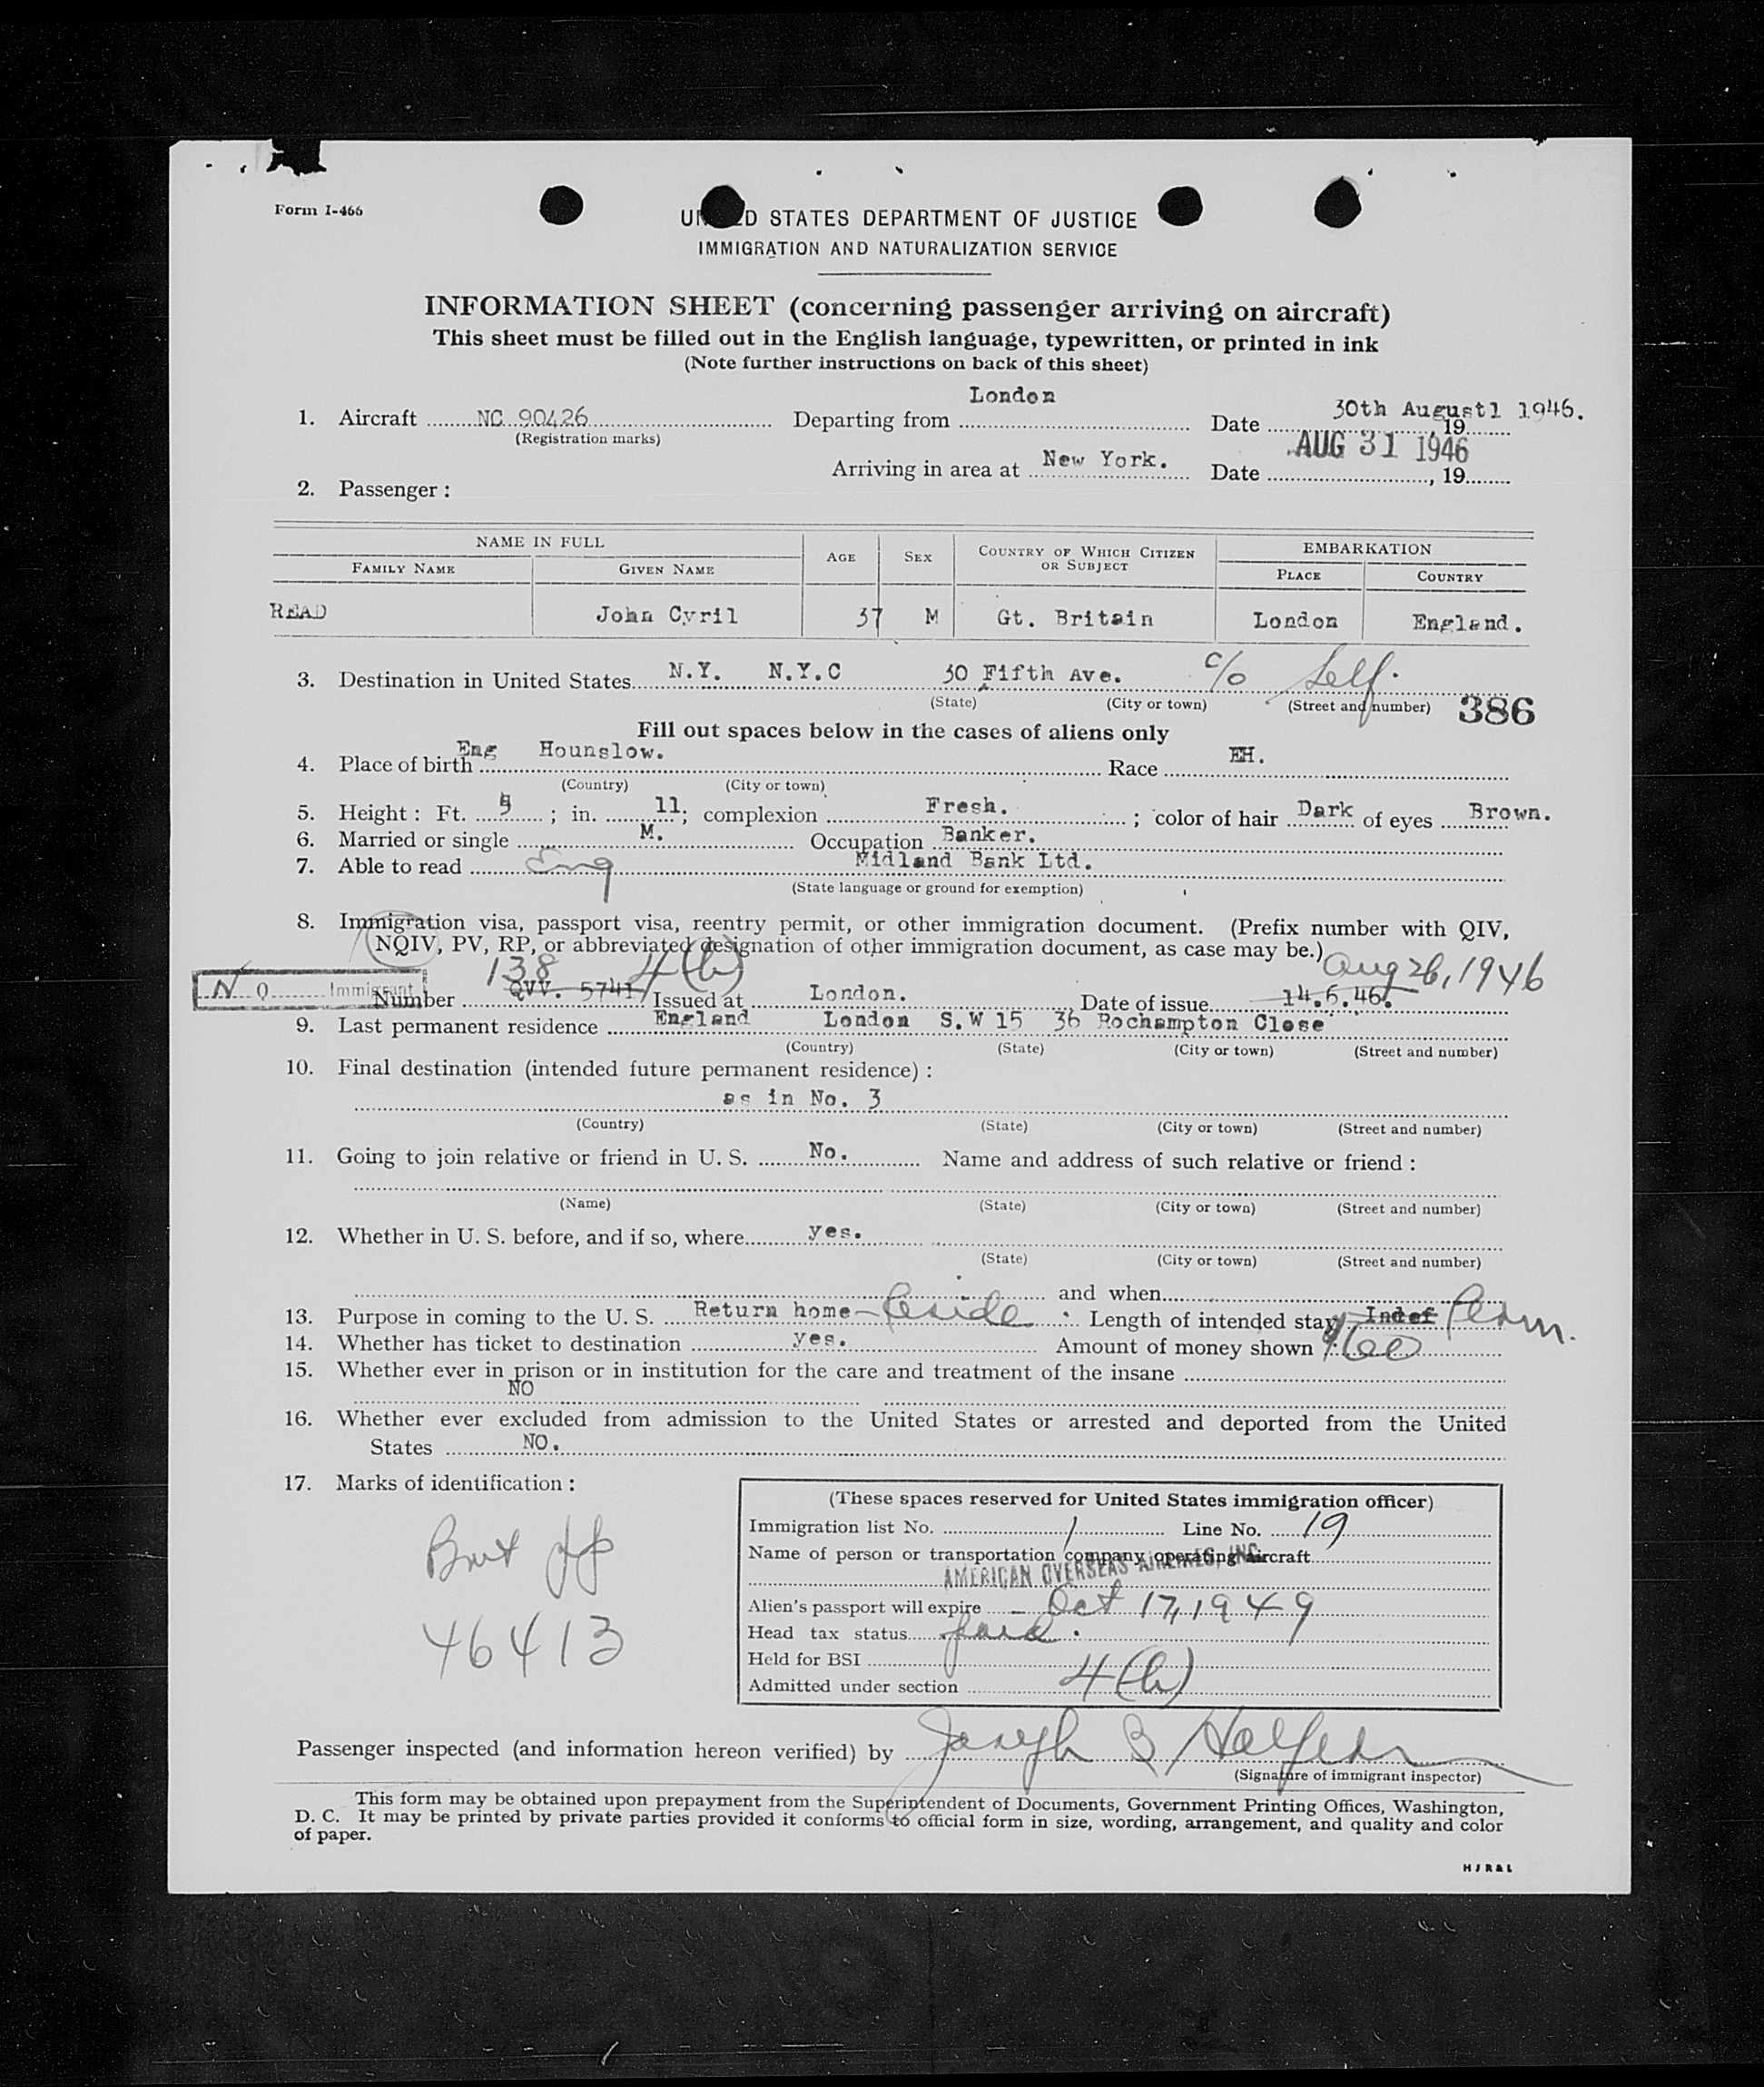 Form I-466
UN D STATES DEPARTMENT OF JUSTICE
IMMIGRATION AND NATURALIZATION SERVICE
INFORMATION SHEET (concerning passenger arriving on aircraft)
This sheet must be filled out in the English language, typewritten, or printed in ink
(Note further instructions on back of this sheet)
1. Aircraft NC 90426 Departing from London Date 30th August1 1946. , 19
(Registration marks)
Arriving in area at New York. Date AUG 31 1946 , 19
2. Passenger :
NAME IN FULL AGE SEX COUNTRY OF WHICH CITIZEN OR SUBJECT EMBARKATION
FAMILY NAME GIVEN NAME PLACE COUNTRY
READ John Cyril 37 M Gt. Britain London England.
3. Destination in United States N.Y. N.Y.C 30 Fifth Ave. c/o Self.
(State) (City or town) (Street and number) 386
Fill out spaces below in the cases of aliens only
4. Place of birth Eng Hounslow. Race EH.
(Country) (City or town)
5. Height : Ft. 5 ; in. 11; complexion Fresh. ; color of hair Dark of eyes Brown.
6. Married or single M. Occupation Banker.
7. Able to read Eng Midland Bank Ltd.
(State language or ground for exemption)
8. Immigration visa, passport visa, reentry permit, or other immigration document. (Prefix number with QIV,
NQIV, PV, RP, or abbreviated designation of other immigration document, as case may be.)
138 4(b) Aug 26, 1946
N Q Immigrant Number QVV. 5741 Issued at London. Date of issue 14.5.46.
9. Last permanent residence England London S.W 15 36 Rochampton Close
(Country) (State) (City or town) (Street and number)
10. Final destination (intended future permanent residence) :
as in No. 3
(Country) (State) (City or town) (Street and number)
11. Going to join relative or friend in U. S. No. Name and address of such relative or friend :
(Name) (State) (City or town) (Street and number)
12. Whether in U. S. before, and if so, where yes.
(State) (City or town) (Street and number)
and when
13. Purpose in coming to the U. S. Return home - Reside . Length of intended stay Indef Perm.
14. Whether has ticket to destination yes. Amount of money shown
15. Whether ever in prison or in institution for the care and treatment of the insane
NO
16. Whether ever excluded from admission to the United States or arrested and deported from the United
States NO.
17. Marks of identification :
Brit pp
46413
(These spaces reserved for United States immigration officer)
Immigration list No. 1 Line No. 19
Name of person or transportation company operating aircraft
AMERICAN OVERSEAS AIRLINES, INC.
Alien's passport will expire - Oct 17, 1949
Head tax status paid.
Held for BSI
Admitted under section 4(b)
Passenger inspected (and information hereon verified) by Joseph B
(Signature of immigrant inspector)
This form may be obtained upon prepayment from the Superintendent of Documents, Government Printing Offices, Washington,
D. C. It may be printed by private parties provided it conforms to official form in size, wording, arrangement, and quality and color
of paper.
HJR&L